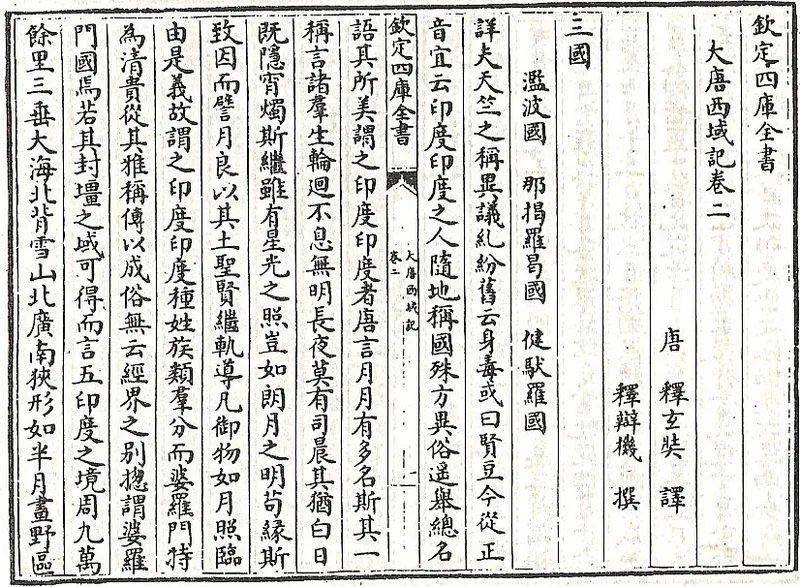 欽定四庫全書
大唐西域記卷二
唐 釋玄奘 譯
釋辯機 撰
三國
濫波國 那揭羅曷國 健馱羅國
詳夫天竺之稱異議糺紛舊云身毒或曰賢豆今從正
音宜云印度印度之人隨地稱國殊方異俗遥舉總名
欽定四庫全書
大唐西域記
卷二
一
語其所美謂之印度印度者唐言月月有多名斯其一
稱言諸羣生輪迴不息無明長夜莫有司晨其猶白日
既隱宵燭斯繼雖有星光之照豈如朗月之明茍緣斯
致因而譬月良以其土聖賢繼軌導凡御物如月照臨
由是義故謂之印度印度種姓族類羣分而婆羅門特
為清貴從其雅稱傳以成俗無云經界之别揔謂婆羅
門國焉若其封壃之域可得而言五印度之境周九萬
餘里三垂大海北背雪山北廣南狹形如半月畫野區